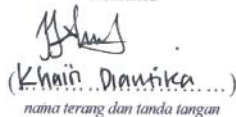 (Khairi Diantika)
nama terang dan tanda tangan